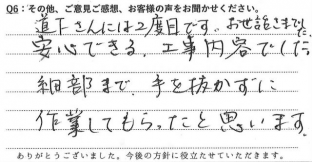 Q6：その他、ご意見ご感想、お客様の声をお聞かせください。
道下さんには2度目です。お世話さまでした。
安心できる、工事内容でした
細部まで、手を抜かずに
作業してもらったと思います。
ありがとうございました。今後の方針に役立たせていただきます。